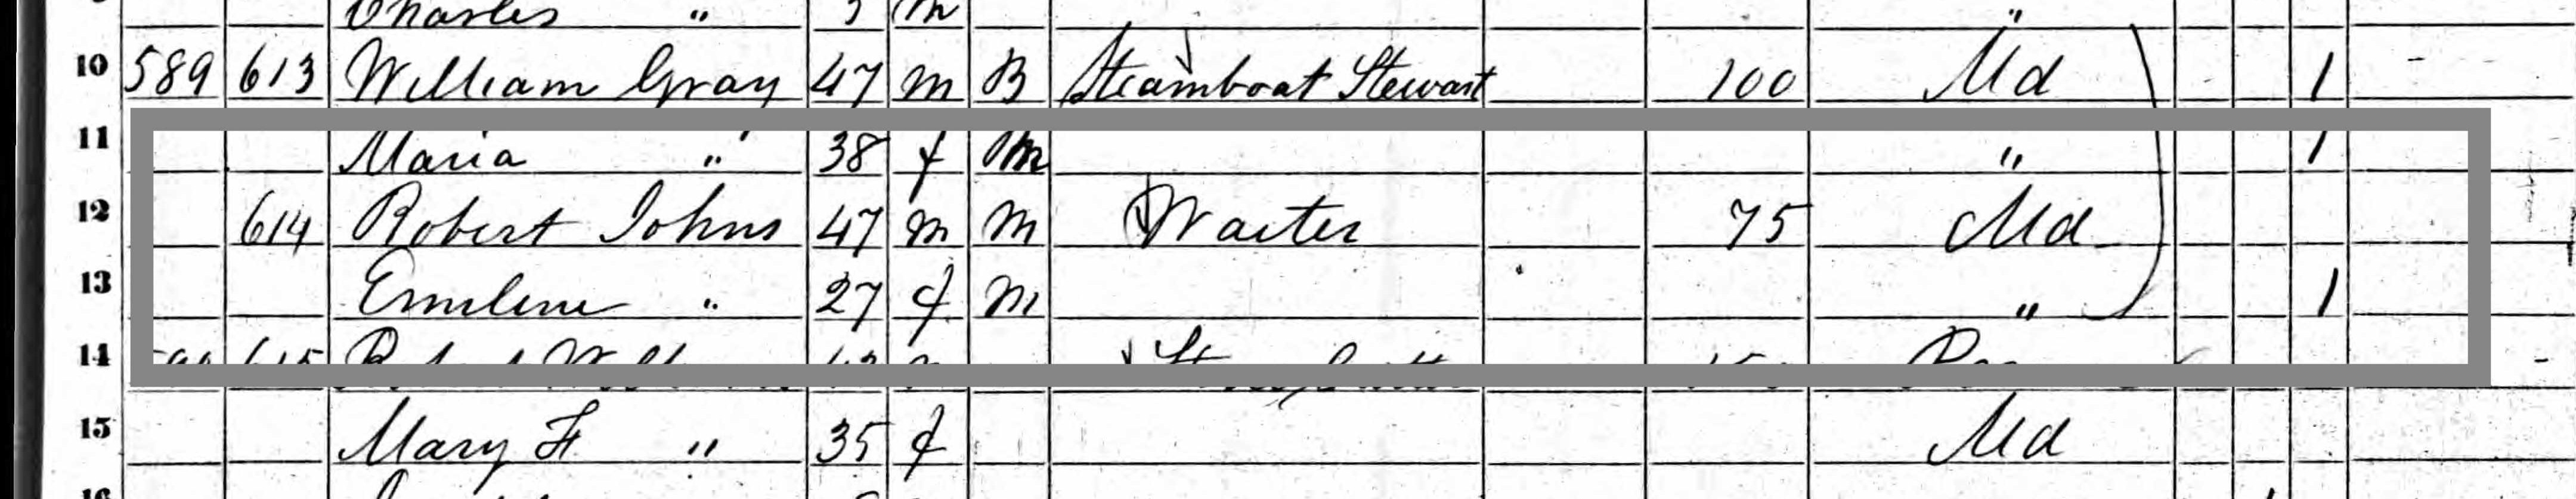 Charles "
10 589 613 William Gray 47 m B Steamboat Stewart 100 Md 1
11 Maria " 38 f M " 1
12 614 Robert Johns 47 m M Waiter 75 Md
13 Emeline " 27 f M " 1
14 615
15 Mary F " 35 f Md
16